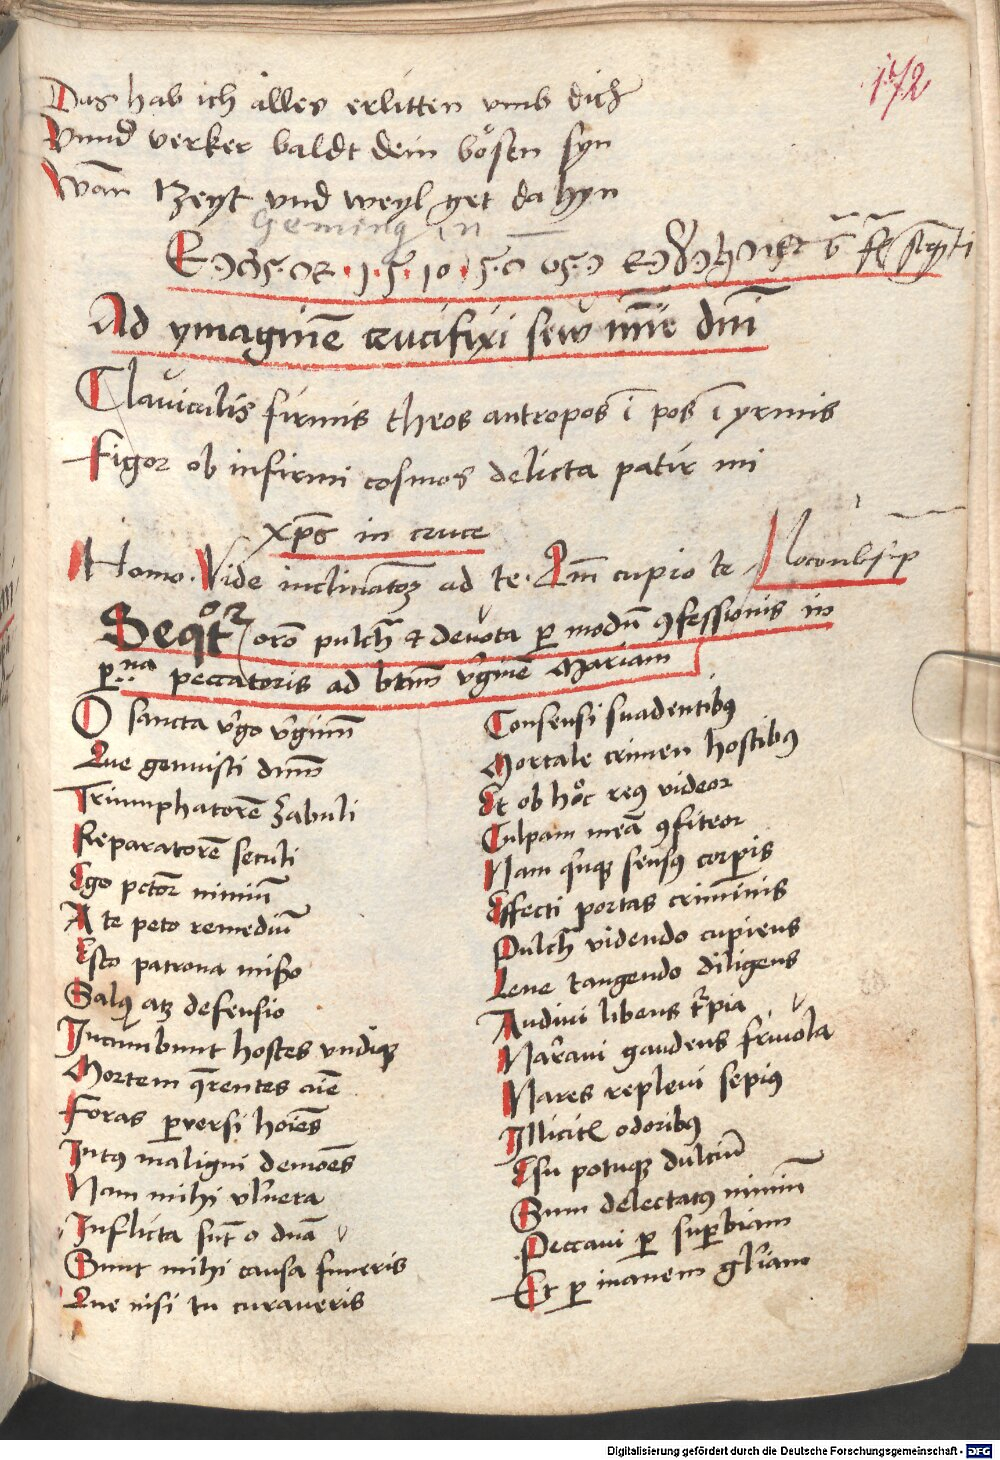 172
Das hab ich alles erlitten vmb dich
Vnnd verker baldt dein bösen syn
Wan tzeyt vnd weyl get da hyn
Ad ymaginē crucifixi sew īm̄ie dnī
Clauiculis firmis theos antropos ī pos ī yrmis
Figor ob infirmi cosmos delicta patir mi
xp̄s in cruce
Homo. Vide inclinatoꝫ ad te. Am̄ cupio te
Seqt̄ᵒʳ orō pulchͣ & deuota ꝑ modū ꝯfessionis in
ꝑ..ⁿᵃ peccatoris ad btm̄ v̓ginē Mariam
O sancta v̓go v̓ginum̄
Que genuisti dnm̄
Triumphatorē zabuli
Reparatorē seculi
Ego pctōr nimiū
A te peto remediū
Esto patrona miẞo
Salus atꝫ defensio
Incumbunt hostes vndiqꝫ
Mortem q̄rentes aīe
Foras ꝑuersi hoīes
Intꝰ maligni demōes
Nam mihi vln̓era
Inflicta sūt o dnā
Sunt mihi causa funeris
Que nisi tu curaueris
Consensi suadentibꝰ
Mortale crimen hostibꝰ
Et ob hoc reꝰ videor
Culpam meā ꝯfiteor
Nam q̓nqꝫ sensꝰ corꝑis
Effecti portas criminis
Pulchͣ videndo cupiens
Lene tangendo diligens
Audiui libens t̓pia
Nar̓aui gaudens friuola
Nares repleui sepiꝰ
Illicitꝭ odoribꝰ
Esu potuqꝫ dulciū
Sum delectatꝰ nimiū
Peccaui ꝑ suꝑbiam
Et ꝑ inanem gl̓iam
Digitalisierung gefördert durch die Deutsche Forschungsgemeinschaft - DFG